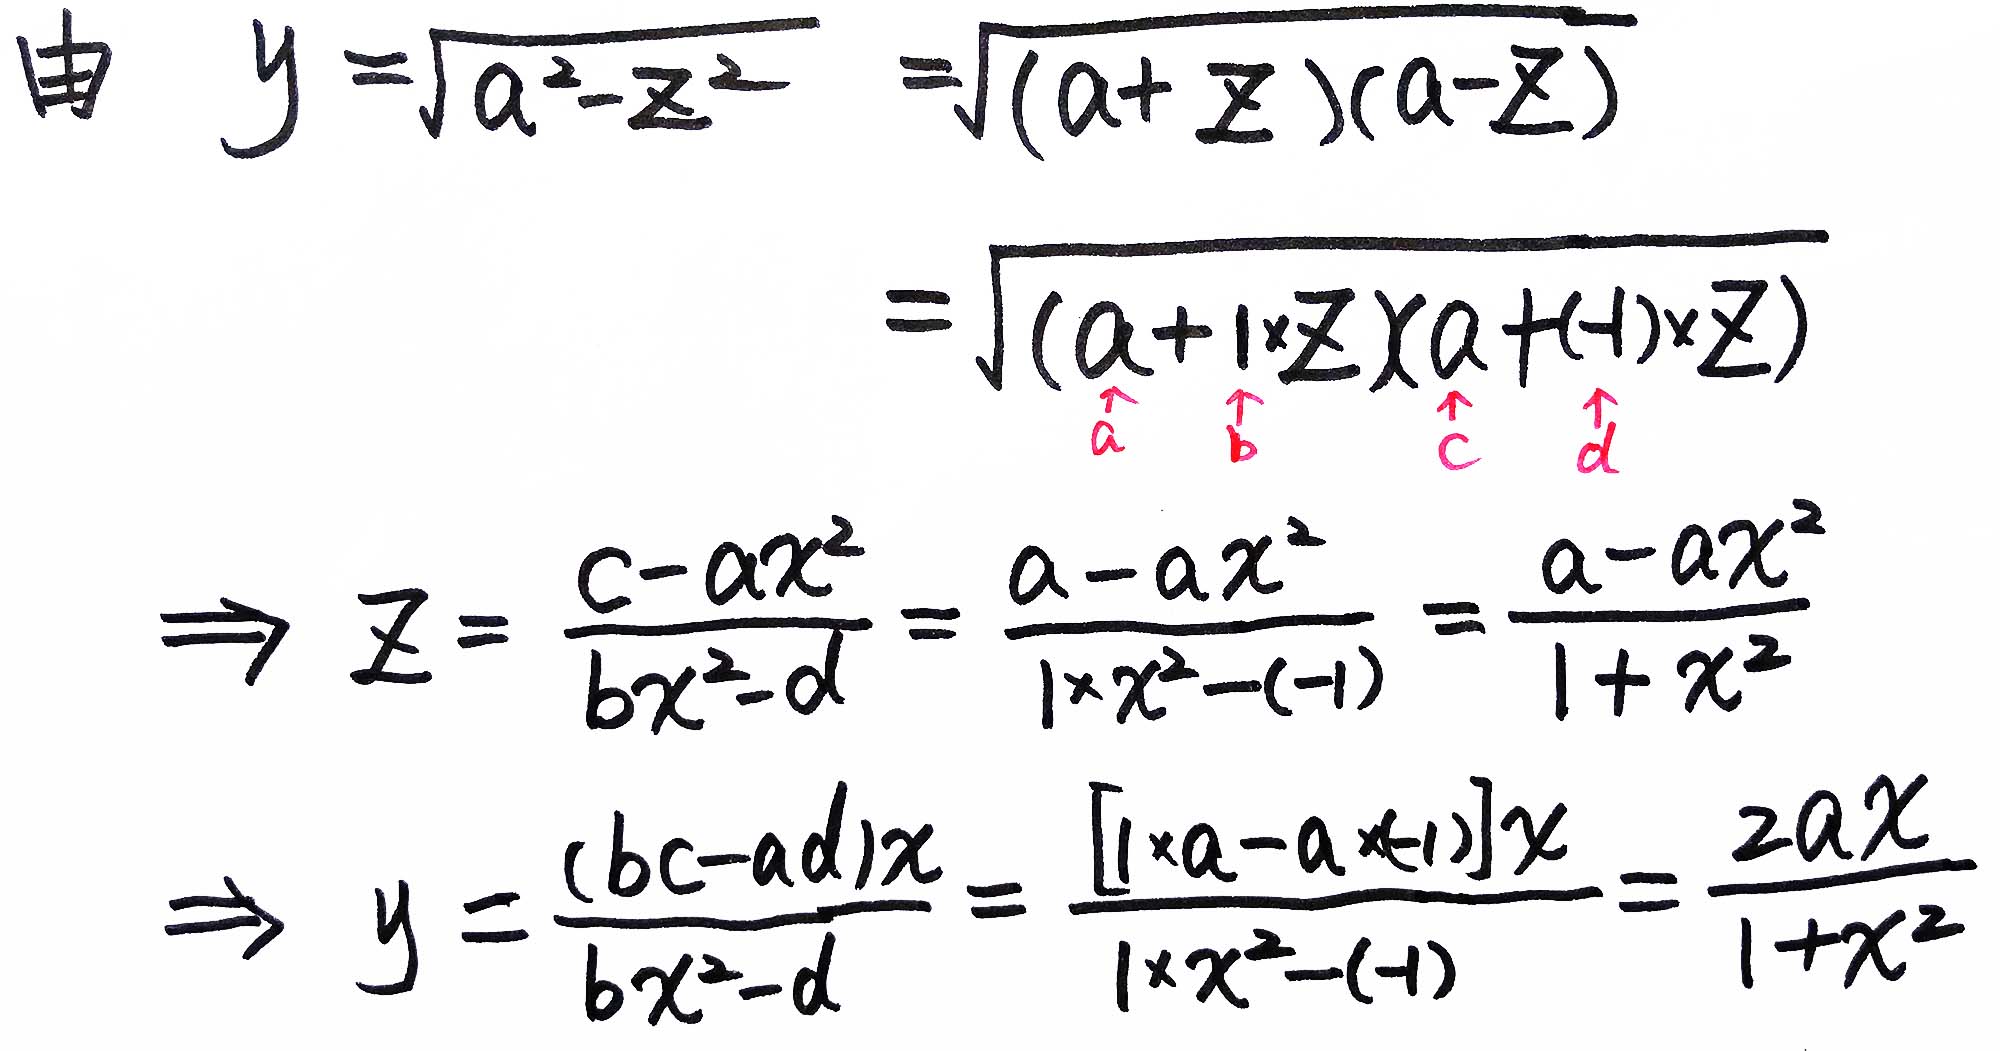 由 y = √(a² - z²) = √((a + z)(a - z))
= √((a + 1×z)(a + (-1)×z))
↑ ↑ ↑ ↑
a b c d
⇒ z = (c - ax²)/(bx² - d) = (a - ax²)/(1×x² - (-1)) = (a - ax²)/(1 + x²)
⇒ y = ((bc - ad)x)/(bx² - d) = ([1×a - a×(-1)]x)/(1×x² - (-1)) = (2ax)/(1 + x²)